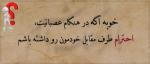 خوبه اگه در هنگام عصبانیت،
احترام طرف مقابل خودمون رو داشته باشم